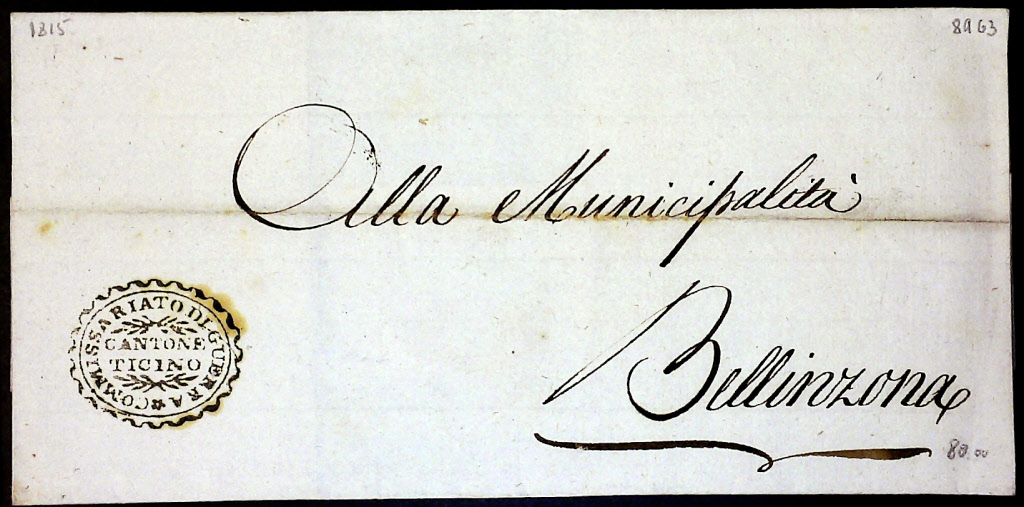 1815
8963
Alla Municipalità
COMMISSARIATO DI GUERRA
CANTONE
TICINO
Bellinzona
80.00